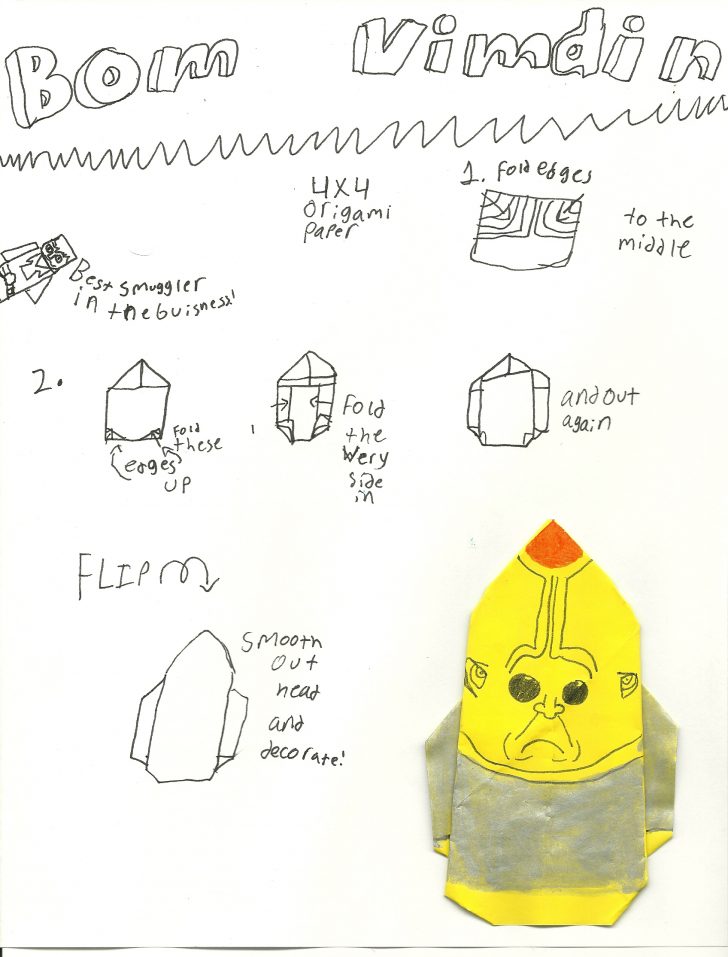 Bom Vimdin
4X4
origami
paper
1. Fold edges
to the
middle
Best smuggler
in the buisness!
2.
Fold
these
edges
up
Fold
the
very
side
in
and out
again
FLIP
Smooth
out
head
and
decorate!